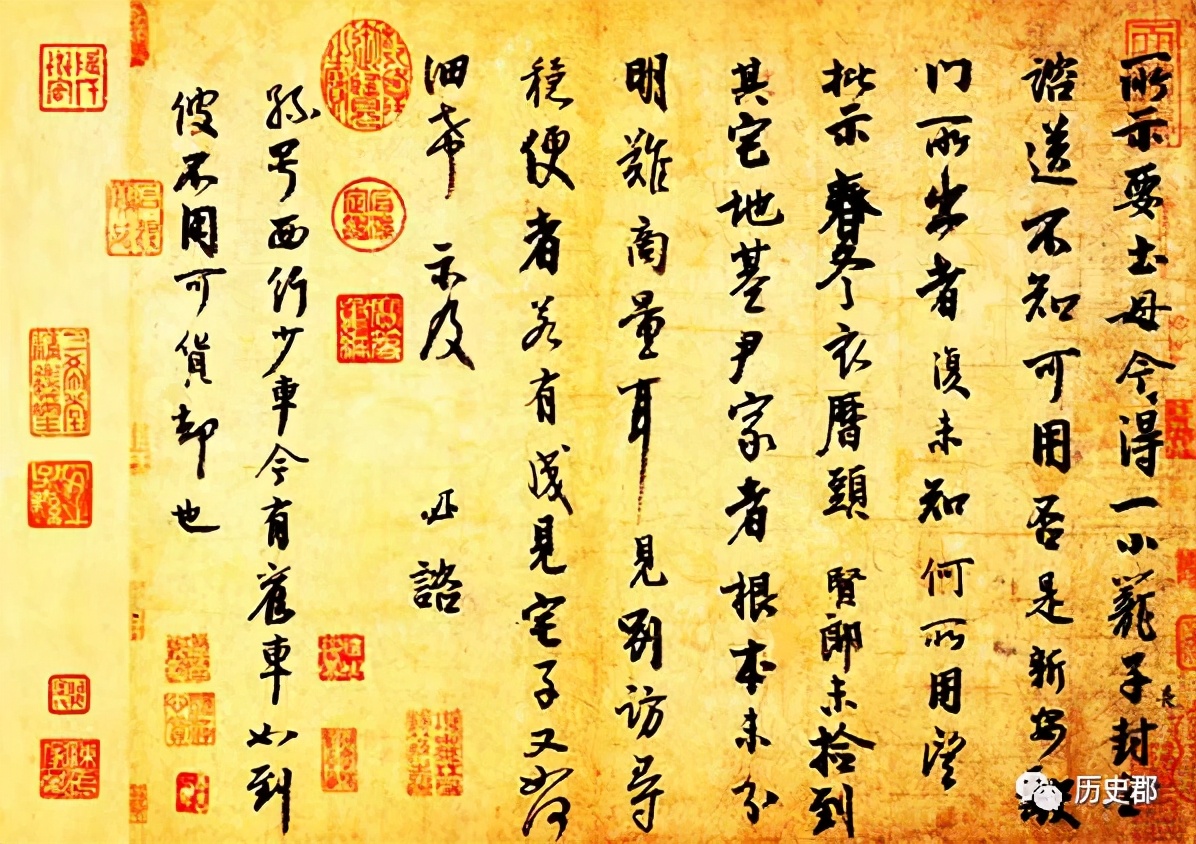 所示要土母今得一小籠子封
諮送不知可用否是新安
门所出者復未知何所用望
批示春冬衣曆頭賢郎未拾到
其宅地基尹家者根本未分
明難商量耳見別訪尋
穩便者若有成見宅子又如何
細希示及 諮
孫号西行少車今有舊車如到
彼不用可貨却也
历史郡